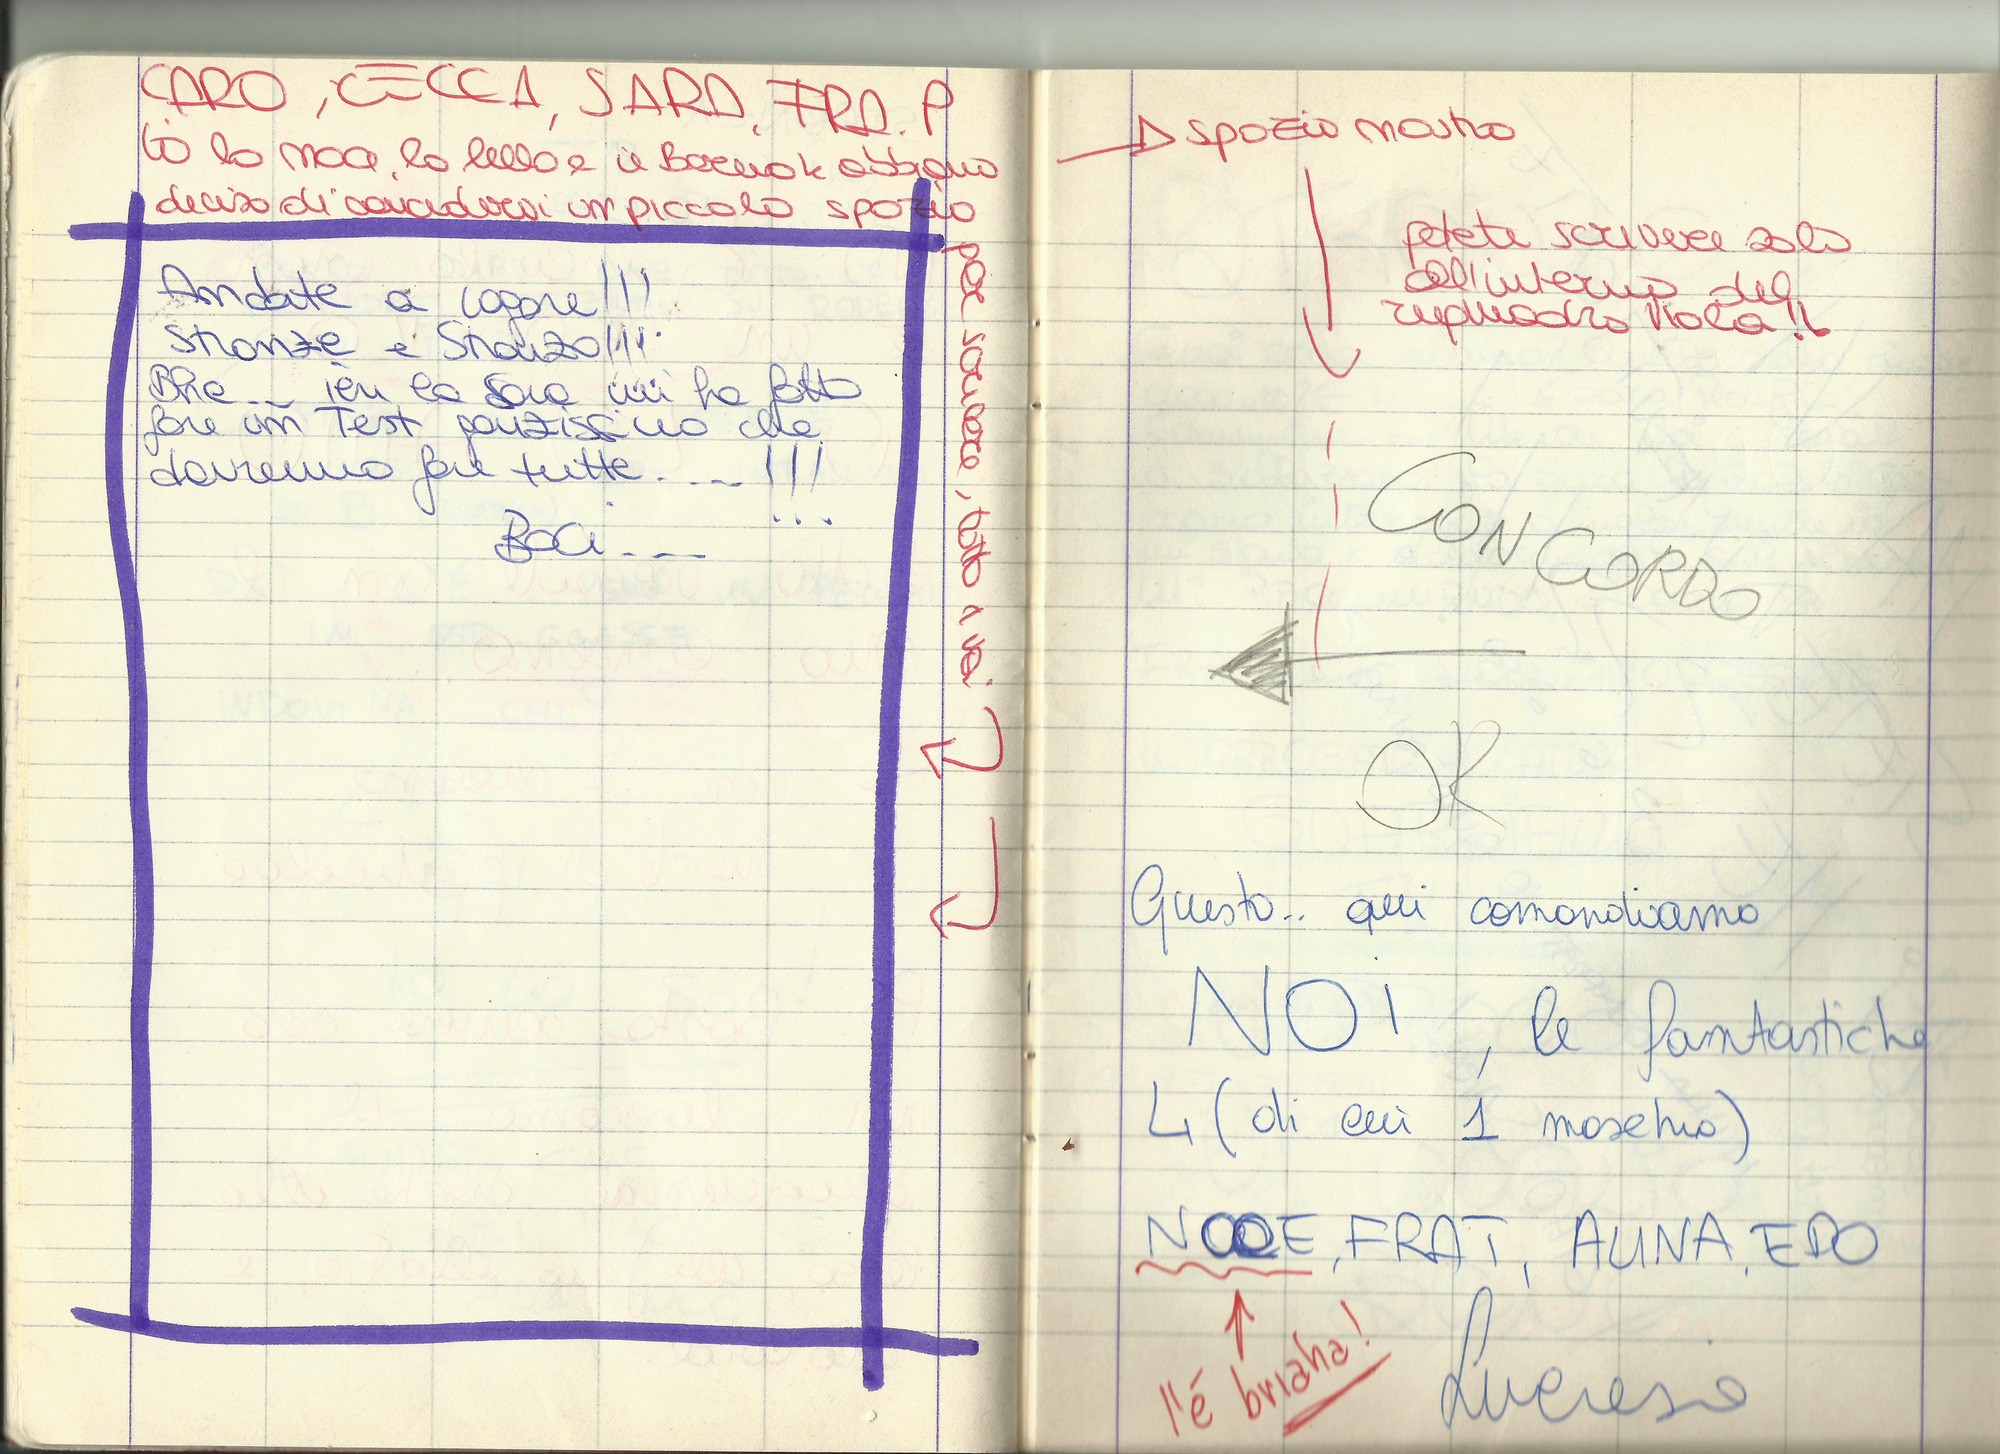 CARO, CECCA, SARA, FRA. P
io la noce, la lella e il Bacuok abbiamo
deciso di concedervi un piccolo spazio
per scrivere, tutto a voi
Andate a cagare!!!
Stronze e Stronzo!!!
Bhe... ieri la Sara mi ha fatto
fare un Test pauzissimo che
dovremmo fare tutte....!!!
...
Baci....
→ spazio nostro
potete scrivere solo
all'interno del
riquadro viola!!
CONCORDO
OK
Questo.. qui comandiamo
NOi, le fantastiche
4 (di cui 1 maschio)
NOCE, FRAT, AUNA, EDO
l'é briaha!
Lucresia